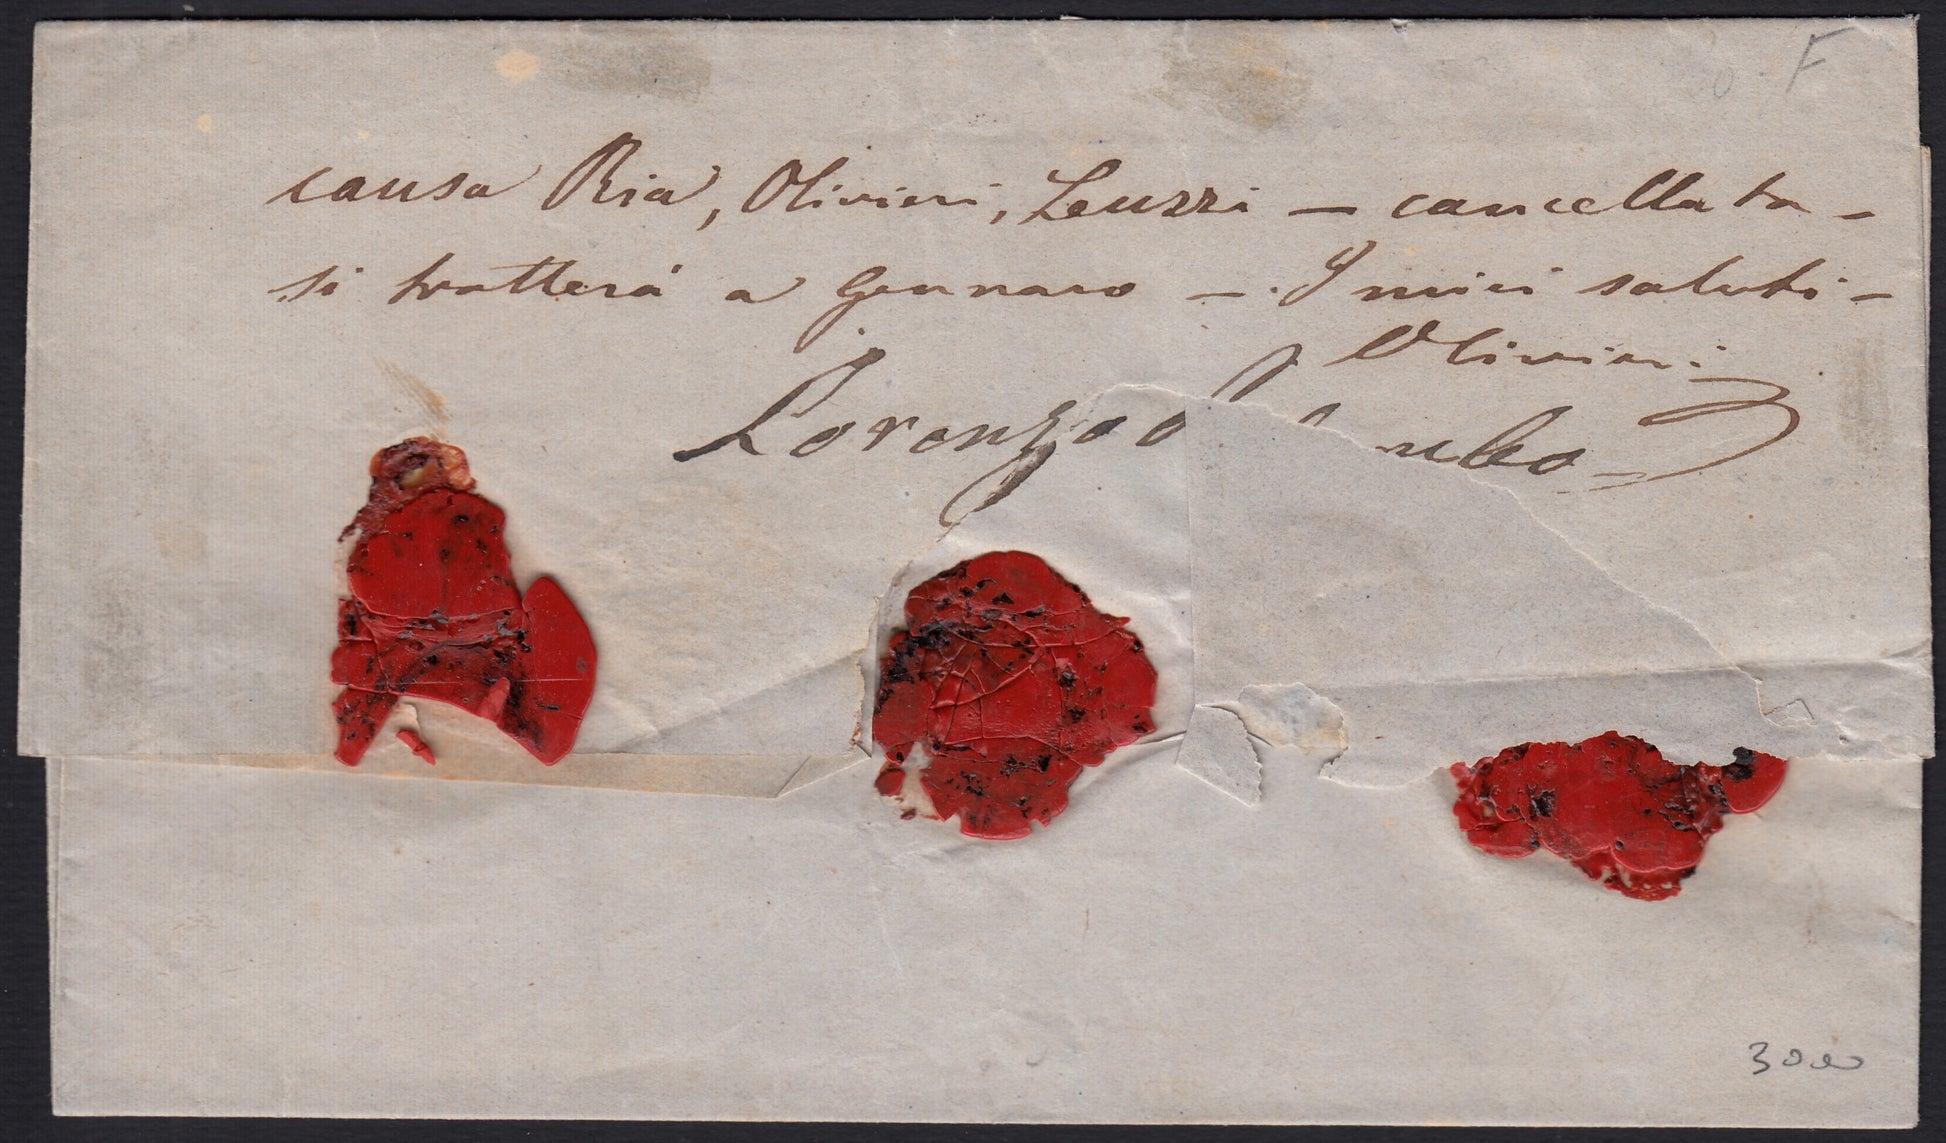 F
causa Ria, Olivieri, Leuzzi — cancellata —
si tratterà a Gennaro — I miei saluti —
Olivieri
Lorenzo
3000